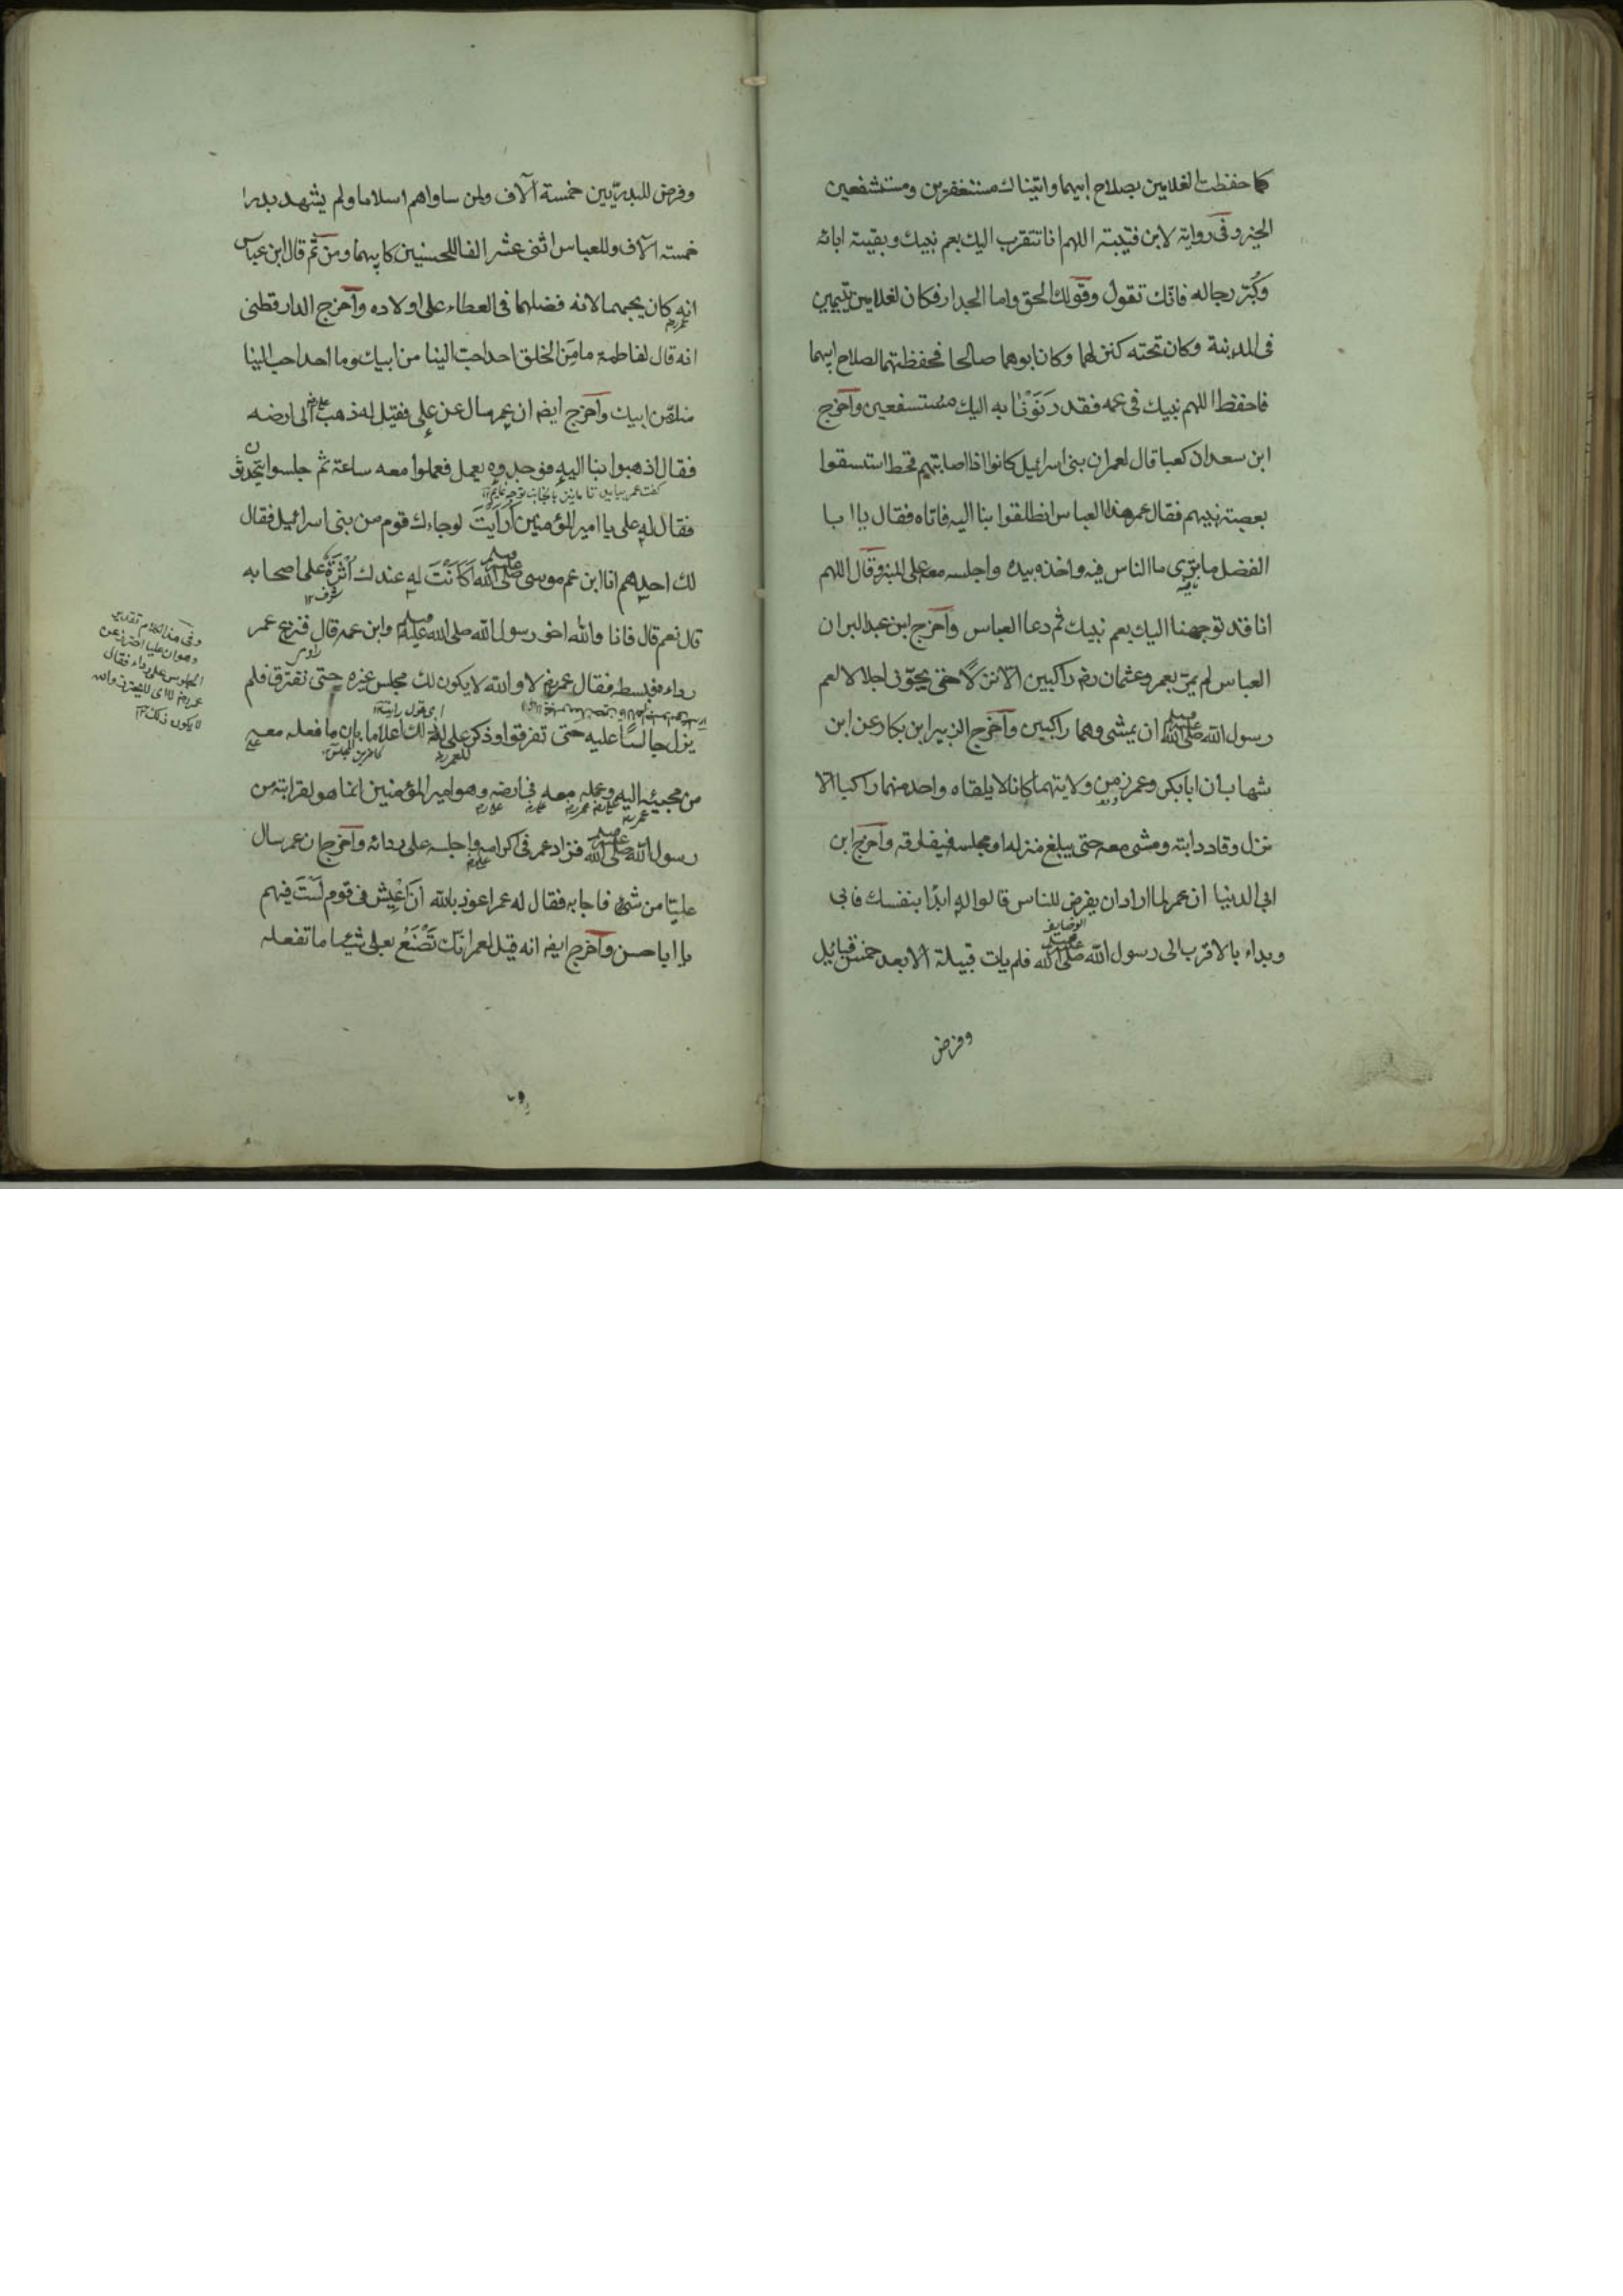 كما حفظت الغلامين بصلاح ابيهما واتيناك مستغفرين ومستشفعين
الخبر وفى رواية لابن قتيبة اللهم انا نتقرب اليك بعم نبيك وبقية ابائه
وكُبْر رجاله فانّك تقول وقولك الحق واما الجدار فكان لغلامين يتيمين
فى المدينة وكان تحته كنز لهما وكان ابوهما صالحا فحفظتهما لصلاح ابيهما
فاحفظ اللهم نبيك فى عمه فقد دَنَوْنا به اليك مستشفعين وآخرج
ابن سعد ان كعبا قال لعمر ان بنى اسرائيل كانوا اذا اصابتهم قحط استسقوا
بعصبة نبيهم فقال عمر هذا العباس انطلقوا بنا اليه فاتاه فقال يا ابا
الفضل ما ترى ما الناس فيه واخذه بيده واجلسه معه على المنبر وقال اللهم
انا قد توجهنا اليك بعم نبيك ثم دعا العباس وآخرج ابن عبد البر ان
العباس لم يمرّ بعمر وعثمان رضـ راكبين الّا نزلا حتى يجوّز اجلالا لعم
رسول الله صلى الله عليه وسلم ان يمشى وهما راكبين وآخرج الزبير ابن بكار عن ابن
شهاب ان ابا بكر وعمر زمن ولايتهما كانا لا يلقاه واحد منهما راكبا الّا
نزل وقاد دابته ومشى معه حتى يبلغ منزله او مجلسه فيفارقه وآخرج ابن
ابى الدنيا ان عمر لما اراد ان يفرض للناس قالوا له ابدا بنفسك فابى
الوضايف
وبداء بالاقرب الى رسول الله صلى الله عليه وسلم فلم يات قبيلة الا بعد خمس قبائل
وفرض
وفرض للبدريّين خمسة آلاف ولمن ساواهم اسلاما ولم يشهد بدرا
خمسة آلاف وللعباس اثنى عشر الفا للحسنين كابيهما ومن ثَمّ قال ابن عباس
انه كان يحبهما لانه فضلهما فى العطاء على اولاده وآخرج الدارقطنى
عمر رضـ
انه قال لفاطمة ما مِن الخلق احد احبّ الينا من ابيك وما احد احب الينا
منك من ابيك وآخرج ايضـ ان عمر سال عن على فقيل له ذهب الى ارضه
فقال اذهبوا بنا اليه فوجدوه يعمل فعملوا معه ساعة ثم جلسوا يتحدثون
فقال له على يا امير المؤمنين اَرَاَيْتَ لو جاءك قوم من بنى اسرائيل فقال
لك احدهم انا ابن عم موسى صلى الله عليه وسلم اَكَانَتْ له عندك اُثْرَةٌ على اصحابه
شرف ١٢
قال نعم قال فانا والله اخو رسول الله صلى الله عليه وسلم وابن عمه قال فنزع عمر
رداءه فبسطه فقال عمر رضـ لا والله لا يكون لك مجلس غيره حتى نفترق فلم
يزل جالسًا عليه حتى تفرقوا وذكر على له ذلك اعلاما بان ما فعله معه
من مجيئه اليه وعمله معه فى ارضه وهو امير المؤمنين انما هو لقرابته من
رسول الله صلى الله عليه وسلم فزاد عمر فى اكرامه واجلسه على ردائه وآخرج ان عمر سال
عليّا من شئ فاجابه فقال له عمر اعوذ بالله اَنْ اَعِيْش فى قوم لَسْتَ فيهم
يا ابا حسن وآخرج ايضـ انه قيل لعمر انّك تَصْنَعُ بعلى شيئا ما تفعله
وفى هذا الكلام تقدير
وهو ان عليا احترز عن
الجلوس على رداءه فقال
عمر رضـ لا اى لا تحترز والله
لا يكون ذلك ١٢